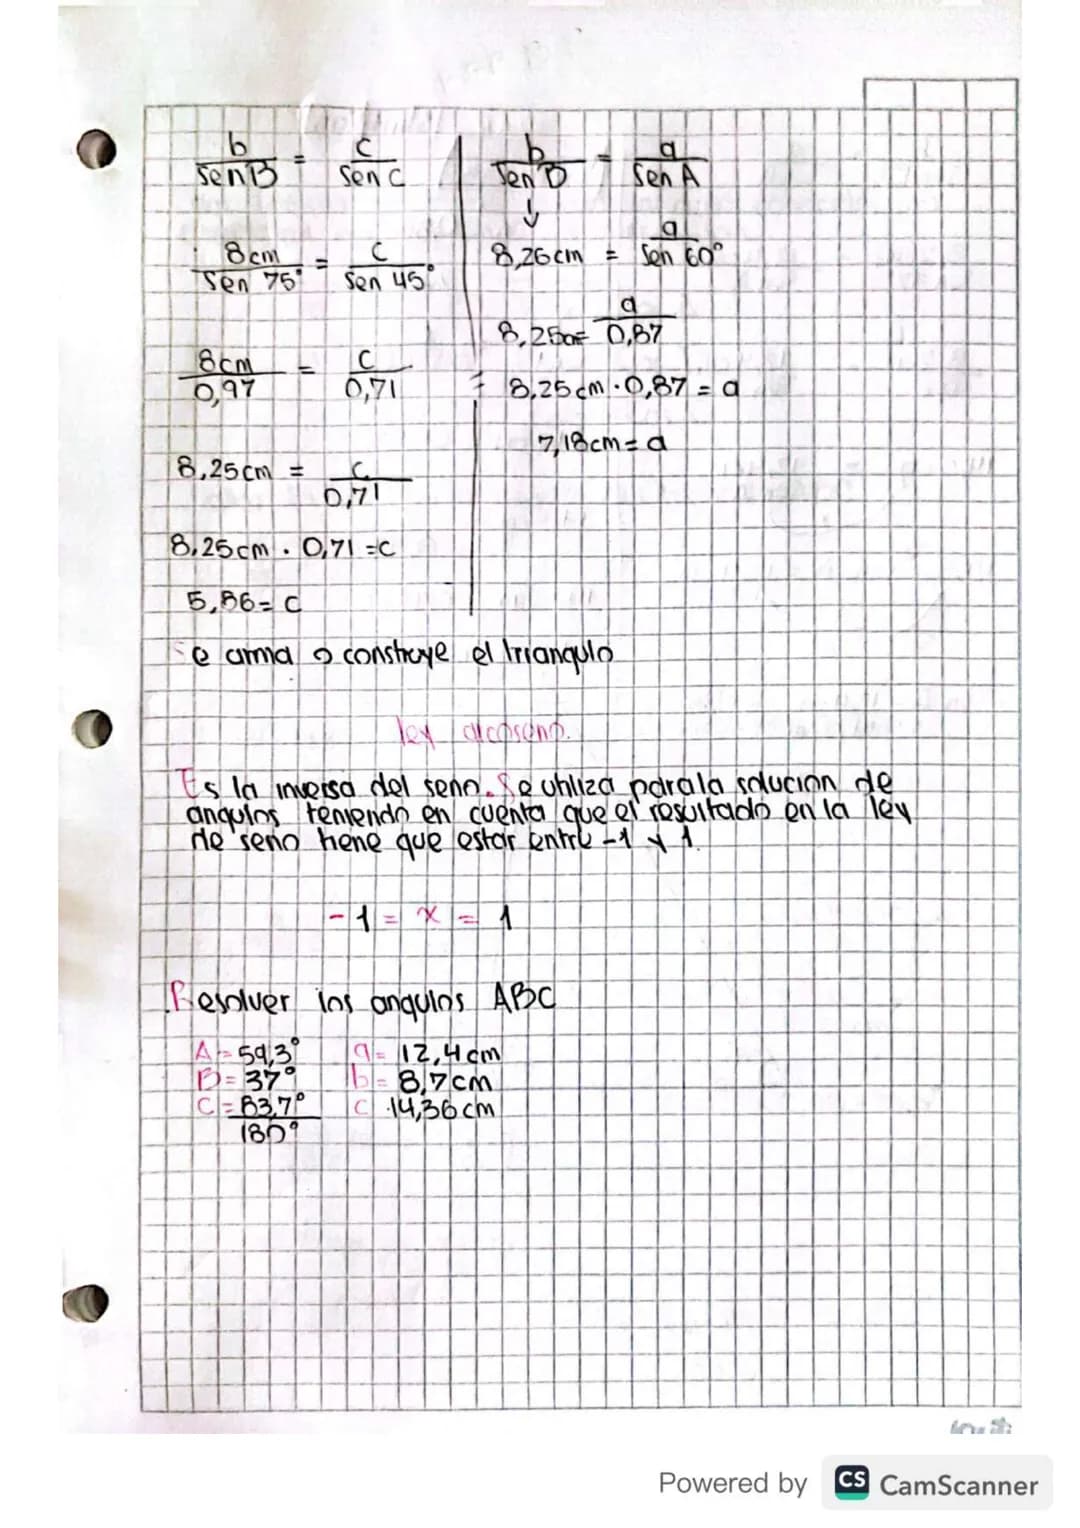 b/SenB = c/Sen C
8cm/Sen 75° = c/Sen 45°
8cm/0,97 = c/0,71
8,25cm = c/0,71
8,25cm · 0,71 = c
5,86 = c
b/Sen B = a/Sen A
↓
8,26cm = a/Sen 60°
8,25 = a/0,87
8,25cm · 0,87 = a
7,18cm = a
Se arma o construye el triangulo
ley arcoseno.
Es la inversa del seno. Se utiliza para la solucion de
angulos teniendo en cuenta que el resultado en la ley
de seno tiene que estar entre -1 y 1.
-1 = x = 1
Resolver los angulos ABC
A = 59,3° a = 12,4cm
B = 37° b = 8,7cm
C = 83,7° c 14,36cm
180°
Powered by CS CamScanner